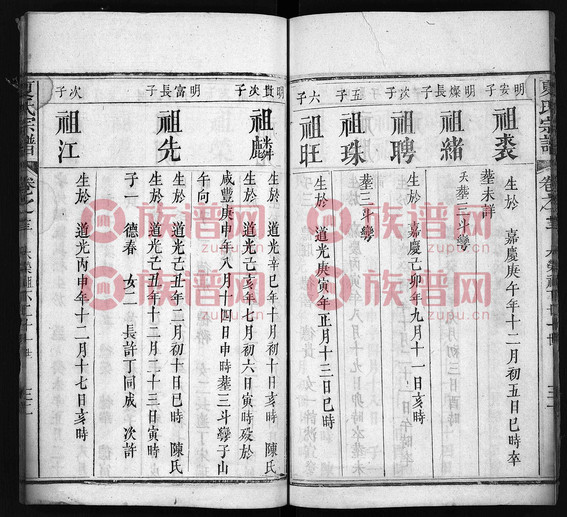 夏氏宗譜
卷之
明安子
祖袭
生於 嘉慶庚午年十二月初五日巳時卒
墓未詳
明燦長子
祖緒
夭墓三斗灣
次子
祖聘
生於 嘉慶己卯年九月十一日亥時
墓三斗灣
五子
祖珠
六子
祖旺
生於 道光庚寅年正月十三日巳時
明貴次子
祖麟
生於 道光辛巳年十月初十日亥時 陳氏
生於 道光乙亥年七月初六日寅時歿於
咸豐庚申年八月十四日申時墓三斗灣子山
午向
明富長子
祖先
生於 道光己丑年二月初十日巳時 陳氏
生於 道光己丑年十二月三十三日寅時
子一 德春 女二 長許丁同成 次許
次子
祖江
生於 道光丙申年十二月十七日亥時
夏氏宗譜
族谱网
zupu.cn